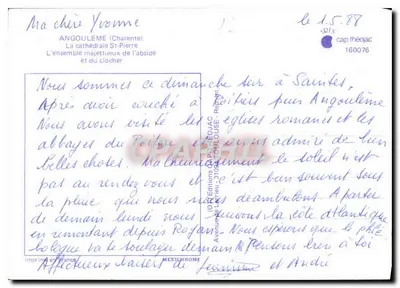 Ma chère Yvonne
le 1.5.88
ANGOULÈME (Charente)
La cathédrale St-Pierre
L'ensemble majestueux de l'abside
et du clocher
cap théojac
160076
Nous sommes ce dimanche soir à Saintes,
Après avoir couché à Poitiers puis Angoulême
Nous avons visité les églises romanes et les
abbayes du Poitou et avons admiré de bien
belles choses. Malheureusement le soleil n'est
pas au rendez vous et c'est bien souvent sous
la pluie que nous nous déambulons. A partir
de demain lundi nous suivons la côte atlantique
en remontant depuis Royan. Nous espérons que le phlé
bologue va te soulager demain. Pensons bien à toi
Affectueux baisers de et André
MEXICHROME